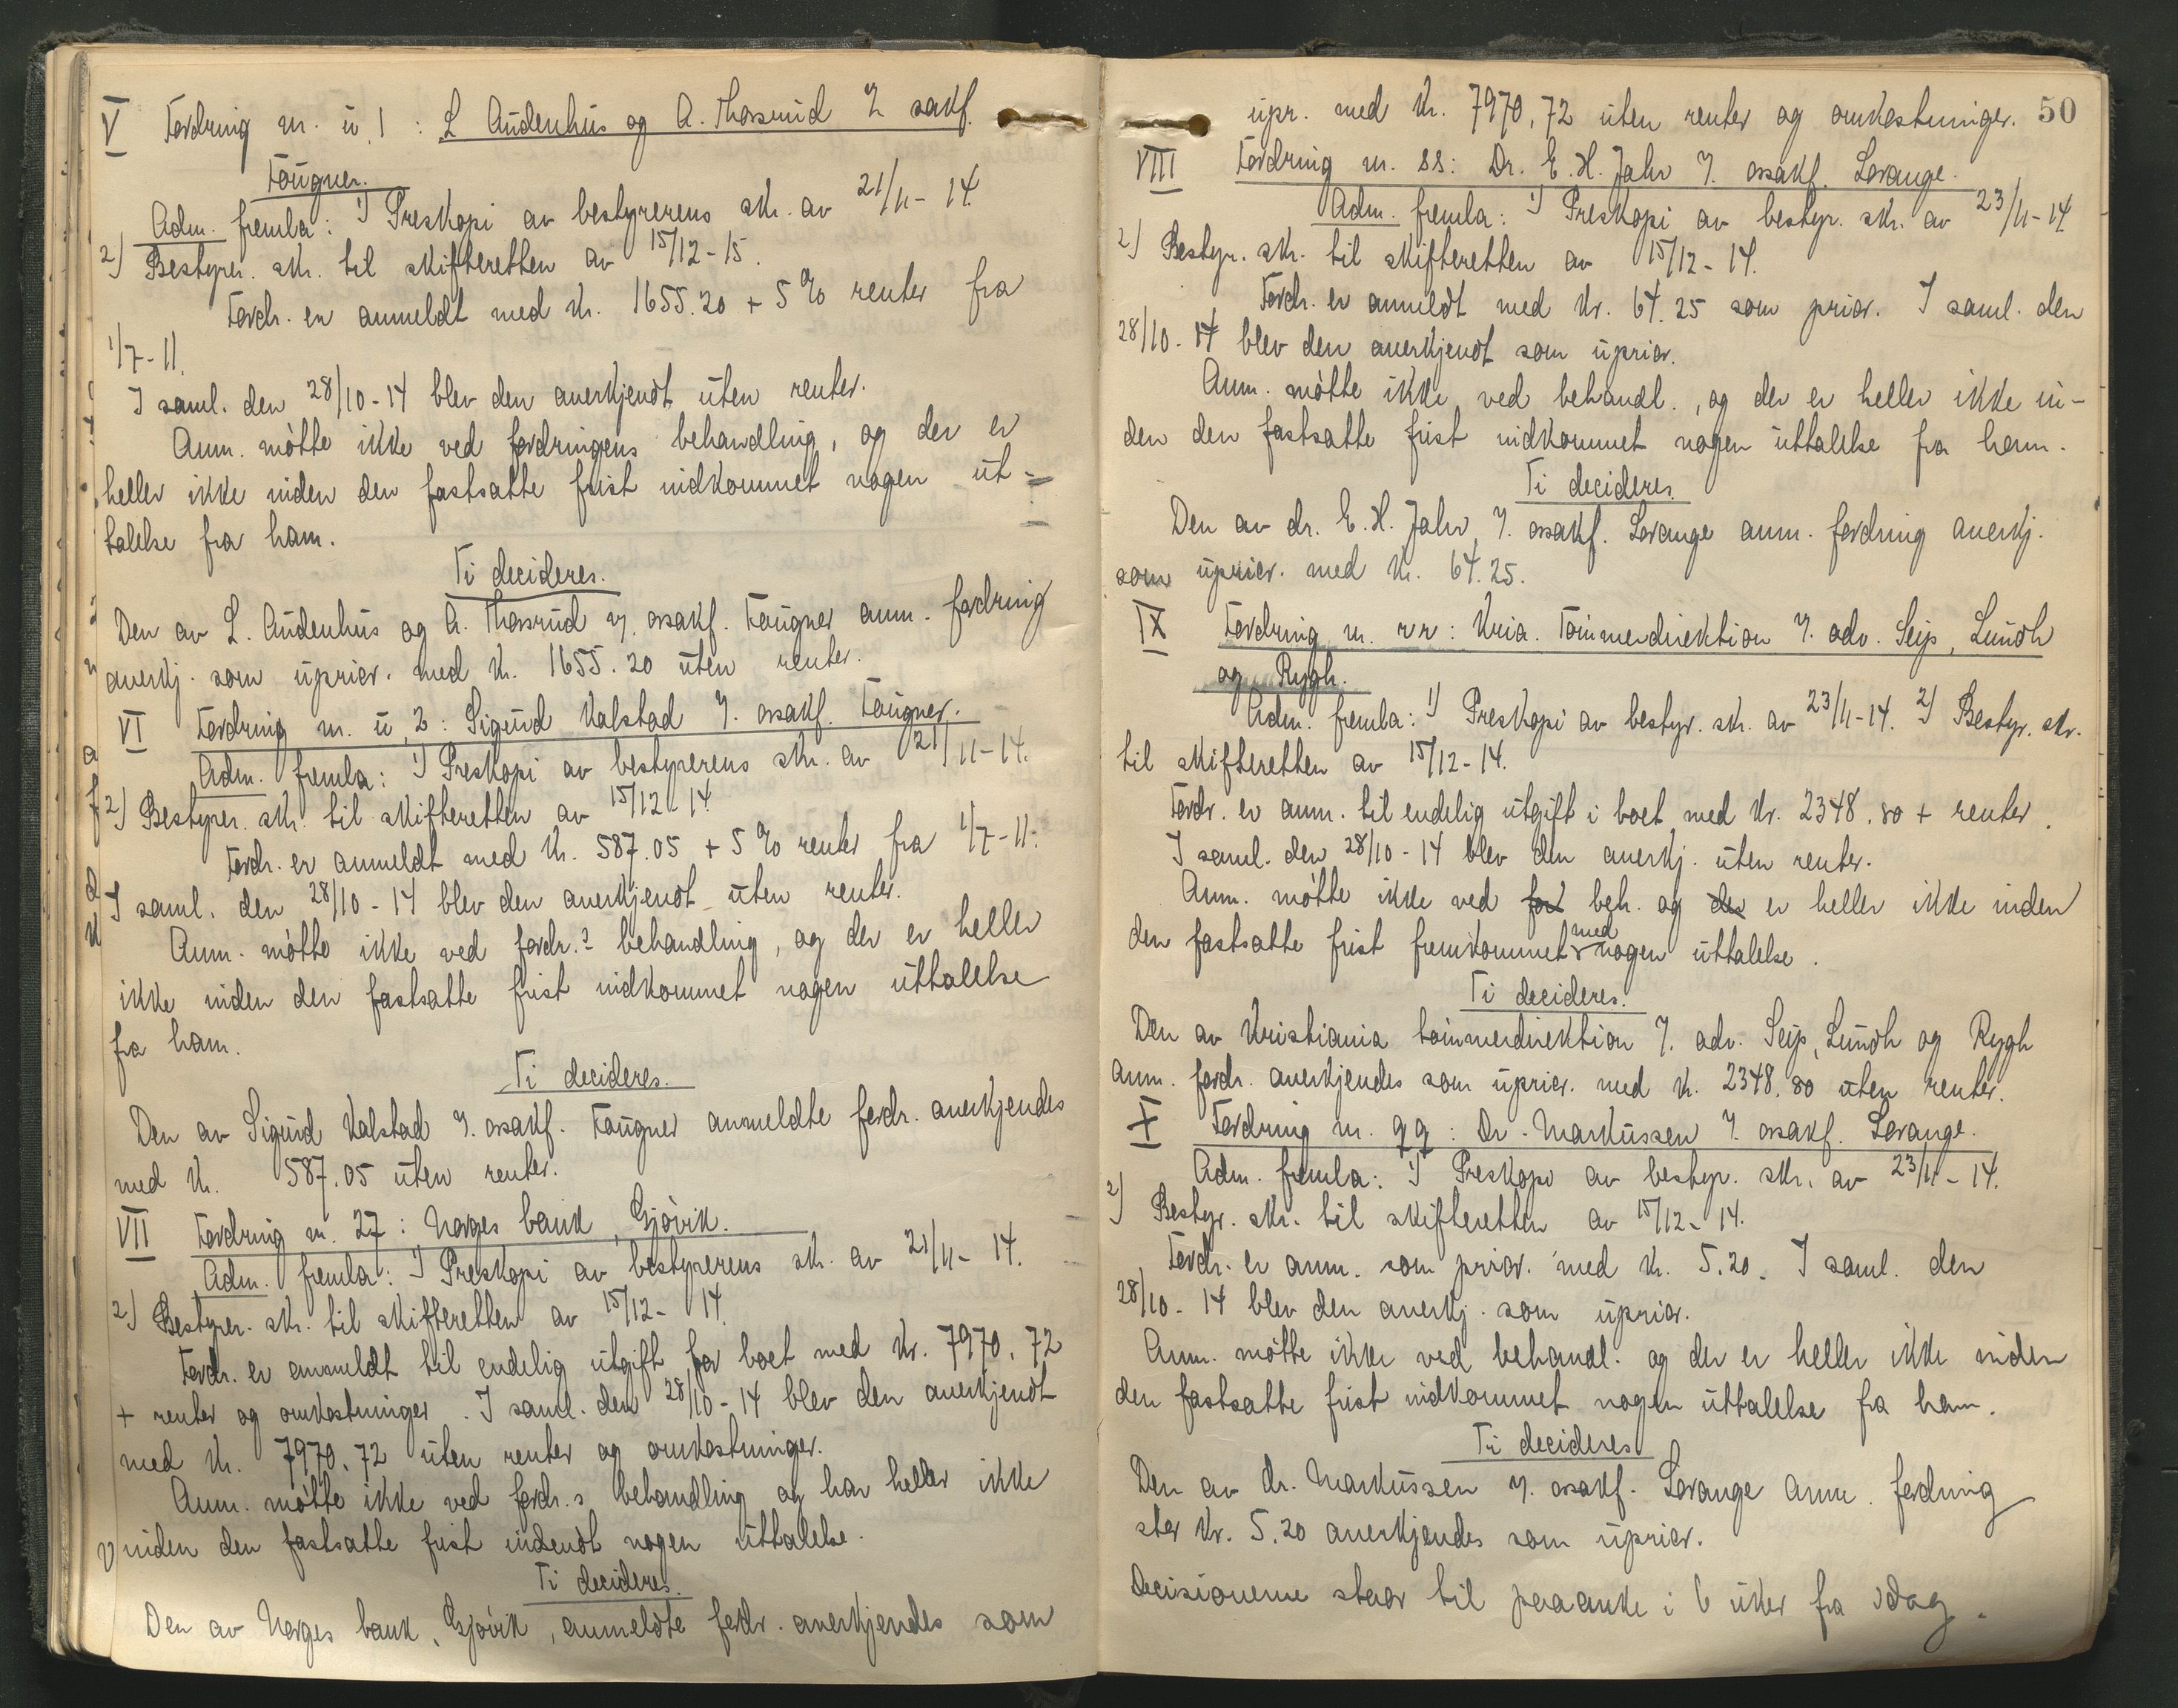 V Fordring nr. u, 1: L Audenhus og A. Thorsrud v/ sakf.
Fougner.
Adm. fremla: 1) Preskopi av bestyrerens skr. av 21/11-14.
2) Bestyrer. skr. til skifteretten av 15/12-15.
Fordr. er anmeldt med kr. 1655.20 + 5 % renter fra
1/7-11.
I saml. den 28/10-14 blev den anerkjendt uten renter.
Anm. møtte ikke ved fordringens behandling, og der er
heller ikke inden den fastsatte frist indkommet nogen ut-
talelse fra ham.
Ti decideres.
Den av L. Audenhus og A. Thorsrud v/. osakf. Fougner anm. fordring
anerkj. som uprior. med kr. 1655.20 uten renter.
VI Fordring nr. u, 2: Sigurd Kalstad v/. osakf. Fougner.
Adm. fremla: 1) Preskopi av bestyrerens skr. av 21/11-14.
2) Bestyrer. skr. til skifteretten av 15/12-14.
Fordr. er anmeldt med kr. 587.05 + 5 % renter fra 1/7-11.
I saml. den 28/10-14 blev den anerkjendt uten renter.
Anm. møtte ikke ved fordr.s behandling, og der er heller
ikke inden den fastsatte frist indkommet nogen uttalelse
fra ham.
Ti decideres.
Den av Sigurd Kalstad v/. osakf. Fougner anmeldte fordr. anerkjendes
med kr. 587.05 uten renter.
VII Fordring nr. 27: Norges bank, Gjøvik.
Adm. fremla: 1) Preskopi av bestyrerens skr. av 21/11-14.
2) Bestyrer. skr. til skifteretten av 15/12-14.
Fordr. er anmeldt til endelig utgift for boet med kr. 7970.72
+ renter og omkostninger. I saml. den 28/10-14 blev den anerkjendt
med kr. 7970.72 uten renter og omkostninger.
Anm. møtte ikke ved fordr.s behandling og har heller ikke
inden den fastsatte frist indsendt nogen uttalelse.
Ti decideres.
Den av Norges bank, Gjøvik, anmeldte fordr. anerkjendes som
50
upr. med kr. 7970,72 uten renter og omkostninger.
VIII Fordring nr. ss: Dr. E. H. Jahr v/. osakf. Lorange.
Adm. fremla: 1) Preskopi av bestyr. skr. av 23/11-14
2) Bestyr. skr. til skifteretten av 15/12-14.
Fordr. er anmeldt med kr. 64.25 som prior. I saml. den
28/10-14 blev den anerkjendt som uprior.
Anm. møtte ikke ved behandl., og der er heller ikke in-
den den fastsatte frist indkommet nogen uttalelse fra ham.
Ti decideres.
Den av dr. E. H. Jahr v/. osakf. Lorange anm. fordring anerkj.
som uprior. med kr. 64.25.
IX Fordring nr. rr: Kria. Tømmerdirektion v/. adv. Seip, Lundh
og Rygh.
Adm. fremla: 1) Preskopi av bestyr. skr. av 23/11-14. 2) Bestyr. skr.
til skifteretten av 15/12-14.
Fordr. er anm. til endelig utgift i boet med kr. 2348.80 + renter.
I saml. den 28/10-14 blev den anerkj. uten renter.
Anm. møtte ikke ved for beh. og der er heller ikke inden
den fastsatte frist fremkommet med nogen uttalelse.
Ti decideres.
Den av Kristiania tømmerdirektion v/. adv. Seip, Lundh og Rygh
anm. fordr. anerkjendes som uprior. med kr. 2348.80 uten renter.
X Fordring nr. qq: Dr. Markussen v/. osakf. Lorange.
Adm. fremla: 1) Preskopi av bestyr. skr. av 23/11-14.
2) Bestyr. skr. til skifteretten av 15/12-14.
Fordr. er anm. som prior. med kr. 5.20. I saml. den
28/10-14 blev den anerkj. som uprior.
Anm. møtte ikke ved behandl. og der er heller ikke inden
den fastsatte frist indkommet nogen uttalelse fra ham.
Ti decideres
Den av dr. Markussen v/. osakf. Lorange anm. fordring
stor kr. 5.20 anerkjendes som uprior.
Decisionerne staar til paaanke i 6 uker fra idag.